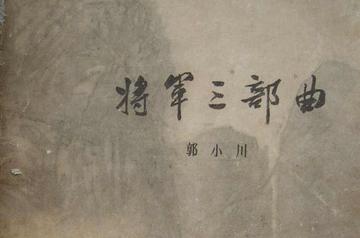 将军三部曲
郭小川